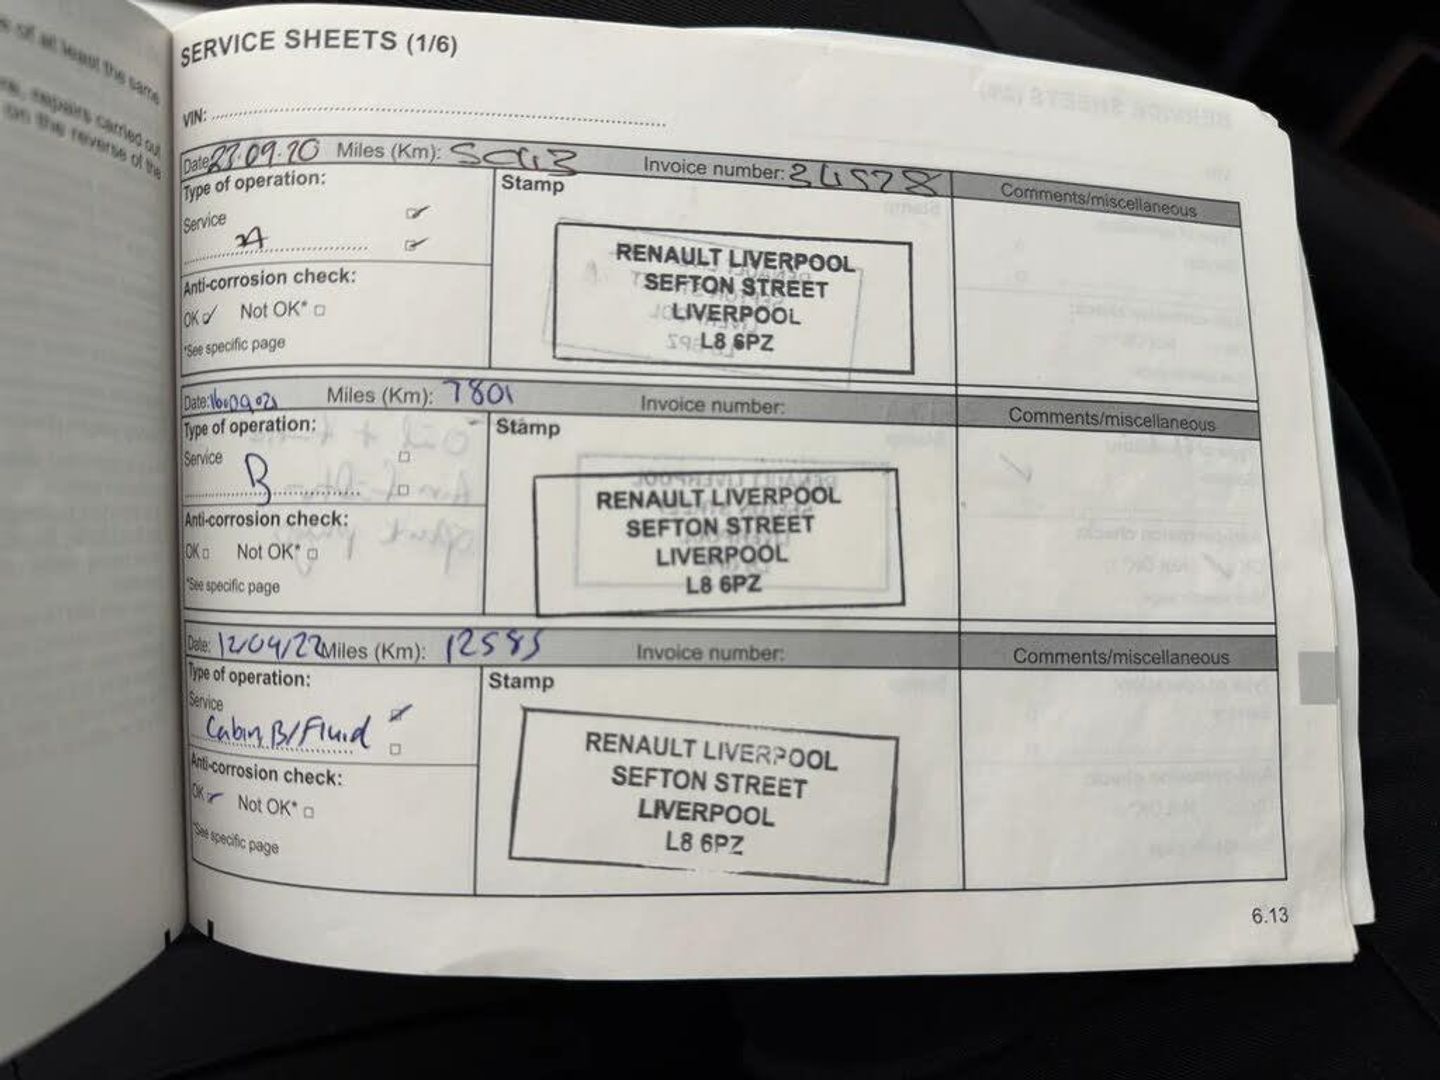 s of at least the same
re, repairs carried out
on the reverse of the
SERVICE SHEETS (1/6)
VIN:
Date: 23.09.20 Miles (Km): Invoice number: Comments/miscellaneous
Type of operation: Stamp
Service
A
Anti-corrosion check:
OK Not OK*
*See specific page
RENAULT LIVERPOOL
SEFTON STREET
LIVERPOOL
L8 6PZ
Date: 16.09.21 Miles (Km): 7801 Invoice number: Comments/miscellaneous
Type of operation: Stamp
Service
B
Anti-corrosion check:
OK Not OK*
*See specific page
RENAULT LIVERPOOL
SEFTON STREET
LIVERPOOL
L8 6PZ
Date: 12/04/22 Miles (Km): 12585 Invoice number: Comments/miscellaneous
Type of operation: Stamp
Service
Cabin B/Fluid
Anti-corrosion check:
OK Not OK*
*See specific page
RENAULT LIVERPOOL
SEFTON STREET
LIVERPOOL
L8 6PZ
6.13